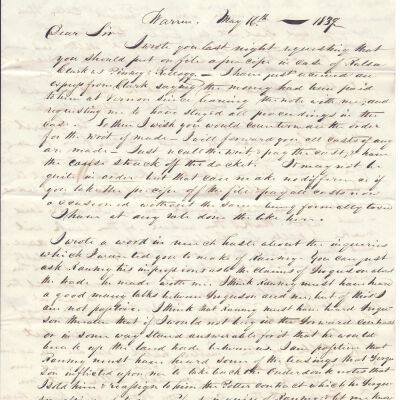 Warren. May 10th — 1839
Dear Sir
I wrote you last night requesting that
you should put on file a precipe in case of Hulda
Clark vs Pinney & Kellogg — I have just received an
express from Clark saying the money had been paid
to him at Vernon since leaving the note with me, and
requesting me to have stayed all proceedings in the
case. So then I wish you would countermand the order
for the writ if made I will forward you all costs if any
are made — Just recall the writ, pay the cost, & have
the cause struck off the docket. It may not be
quite in order but that can make no difference if
you take the precipe off the file & pay all costs now
occasioned without the same being formally
I have at any rate done the like here.
I wrote a word in much haste about the inquiries
which I wanted you to make of Ranney. You can just
ask Ranney his impressions as to the claims of Ferguson about
the trade he made with me. I think Ranney must have heard
a good many talks between Ferguson and me, but of this I
am not positive. I think that Ranney must have heard Fergu-
son threaten that if I would not buy in the Leonard contract
or in some way stand answerable for it that he would
break up the land trade between us. I am positive that
Ranney must have heard some of the teasings that Fergu
son inflicted upon me to take back the Onderdonk notes that
I sold him & reassign to him the Potter contract which he Fergu-